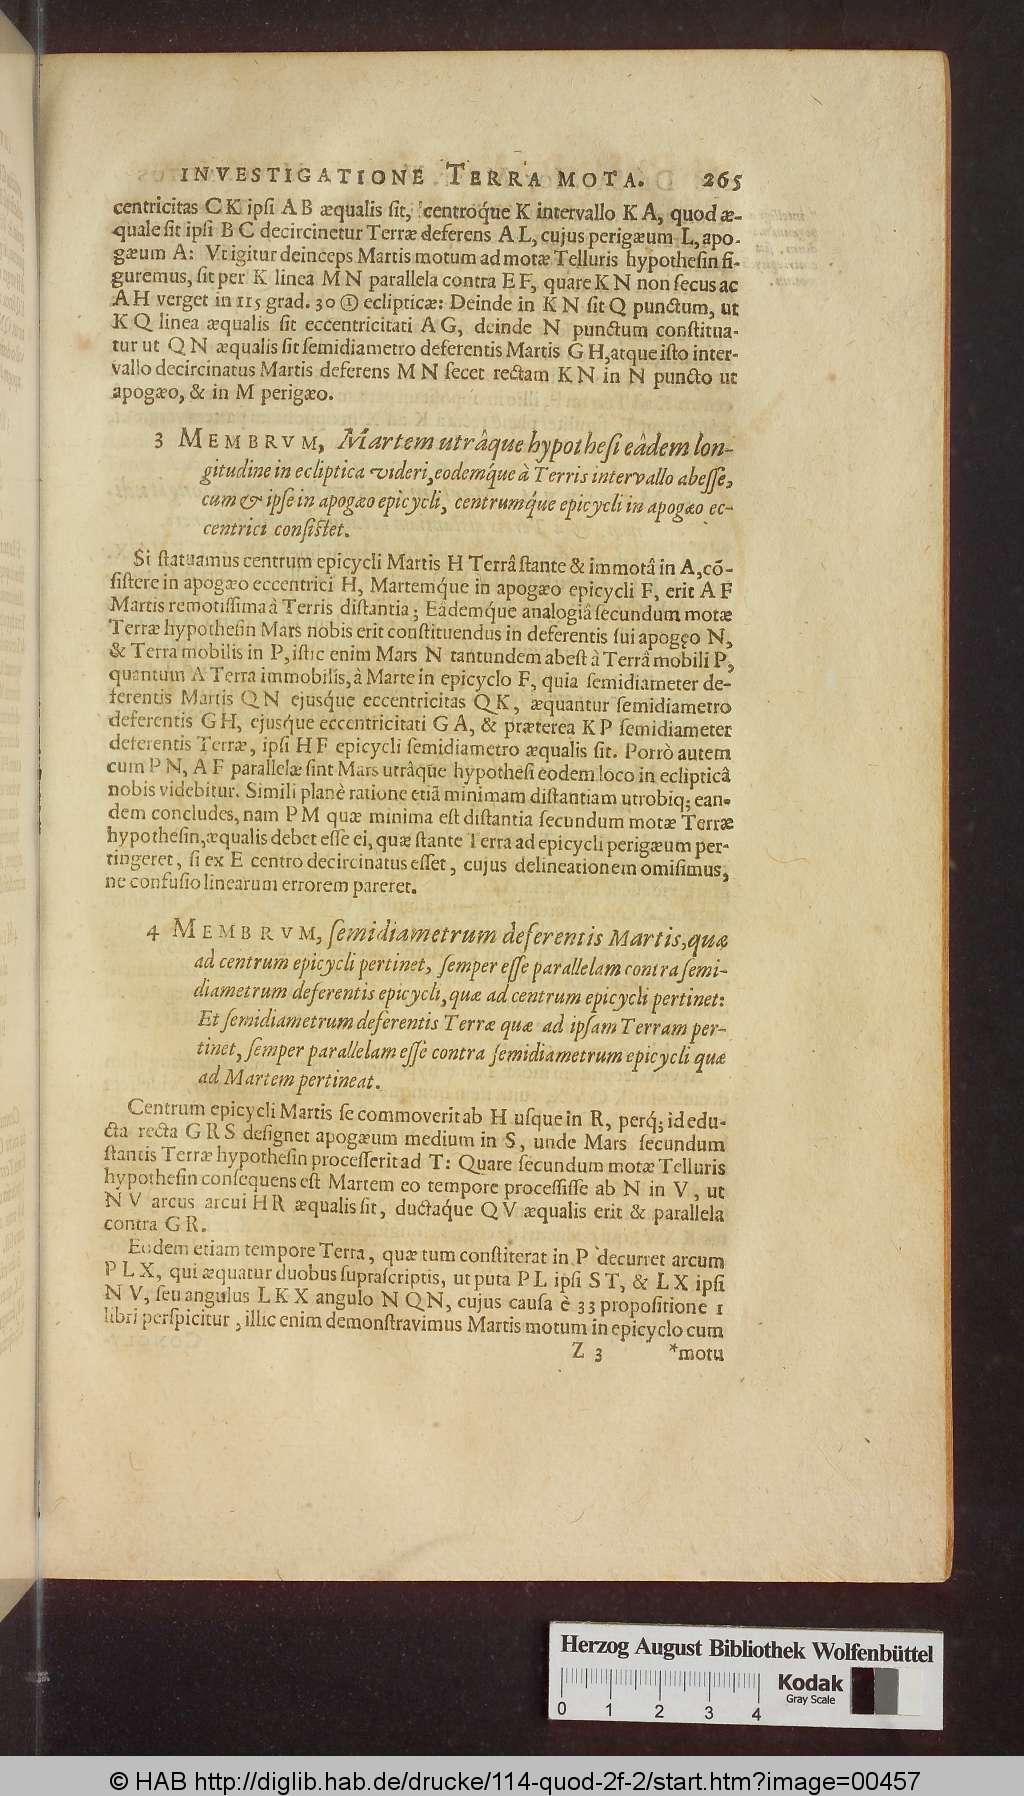 INVESTIGATIONE TERRA MOTA. 265
centricitas CK ipſi AB æqualis ſit, centroq́ue K intervallo KA, quod æ-
quale ſit ipſi BC decircinetur Terræ deferens AL, cujus perigæum L, apo-
gæum A: Vt igitur deinceps Martis motum ad motæ Telluris hypotheſin fi-
guremus, ſit per K linea MN parallela contra EF, quare KN non ſecus ac
AH verget in 115 grad. 30 ① eclipticæ: Deinde in KN ſit Q punctum, ut
KQ linea æqualis ſit eccentricitati AG, deinde N punctum conſtitua-
tur ut QN æqualis ſit ſemidiametro deferentis Martis GH, atque iſto inter-
vallo decircinatus Martis deferens MN ſecet rectam KN in N puncto ut
apogæo, & in M perigæo.
3 MEMBRVM, Martem utrâque hypotheſi eâdem lon-
gitudine in ecliptica videri, eodemq́ue à Terris intervallo abeſſe,
cum & ipſe in apogæo epicycli, centrumq́ue epicycli in apogæo ec-
centrici conſiſtet.
Si ſtatuamus centrum epicycli Martis H Terrâ ſtante & immotâ in A, cõ-
ſiſtere in apogæo eccentrici H, Martemq́ue in apogæo epicycli F, erit AF
Martis remotiſſima à Terris diſtantia; Eâdemq́ue analogiâ ſecundum motæ
Terræ hypotheſin Mars nobis erit conſtituendus in deferentis ſui apogęo N,
& Terra mobilis in P, iſtic enim Mars N tantundem abeſt à Terrâ mobili P,
quantum A Terra immobilis, à Marte in epicyclo F, quia ſemidiameter de-
ferentis Martis QN ejuſq́ue eccentricitas QK, æquantur ſemidiametro
deferentis GH, ejuſq́ue eccentricitati GA, & præterea KP ſemidiameter
deferentis Terræ, ipſi HF epicycli ſemidiametro æqualis ſit. Porrò autem
cum PN, AF parallelæ ſint Mars utrâque hypotheſi eodem loco in eclipticâ
nobis videbitur. Simili planè ratione etiã minimam diſtantiam utrobiq; ean-
dem concludes, nam PM quæ minima eſt diſtantia ſecundum motæ Terræ
hypotheſin, æqualis debet eſſe ei, quæ ſtante Terra ad epicycli perigæum per-
tingeret, ſi ex E centro decircinatus eſſet, cujus delineationem omiſimus,
ne confuſio linearum errorem pareret.
4 MEMBRVM, ſemidiametrum deferentis Martis, quæ
ad centrum epicycli pertinet, ſemper eſſe parallelam contra ſemi-
diametrum deferentis epicycli, quæ ad centrum epicycli pertinet:
Et ſemidiametrum deferentis Terræ quæ ad ipſam Terram per-
tinet, ſemper parallelam eſſe contra ſemidiametrum epicycli quæ
ad Martem pertineat.
Centrum epicycli Martis ſe commoverit ab H uſque in R, perq́; id edu-
cta recta GRS deſignet apogæum medium in S, unde Mars ſecundum
ſtantis Terræ hypotheſin proceſſerit ad T: Quare ſecundum motæ Telluris
hypotheſin conſequens eſt Martem eo tempore proceſſiſſe ab N in V, ut
NV arcus arcui HR æqualis ſit, ductaq́ue QV æqualis erit & parallela
contra GR.
Eodem etiam tempore Terra, quæ tum conſtiterat in P decurret arcum
PLX, qui æquatur duobus ſupraſcriptis, ut puta PL ipſi ST, & LX ipſi
NV, ſeu angulus LKX angulo NQN, cujus cauſa è 33 propoſitione 1
libri perſpicitur, illic enim demonſtravimus Martis motum in epicyclo cum
Z 3 *motu
Herzog August Bibliothek Wolfenbüttel
Kodak
Gray Scale
0 1 2 3 4
© HAB http://diglib.hab.de/drucke/114-quod-2f-2/start.htm?image=00457